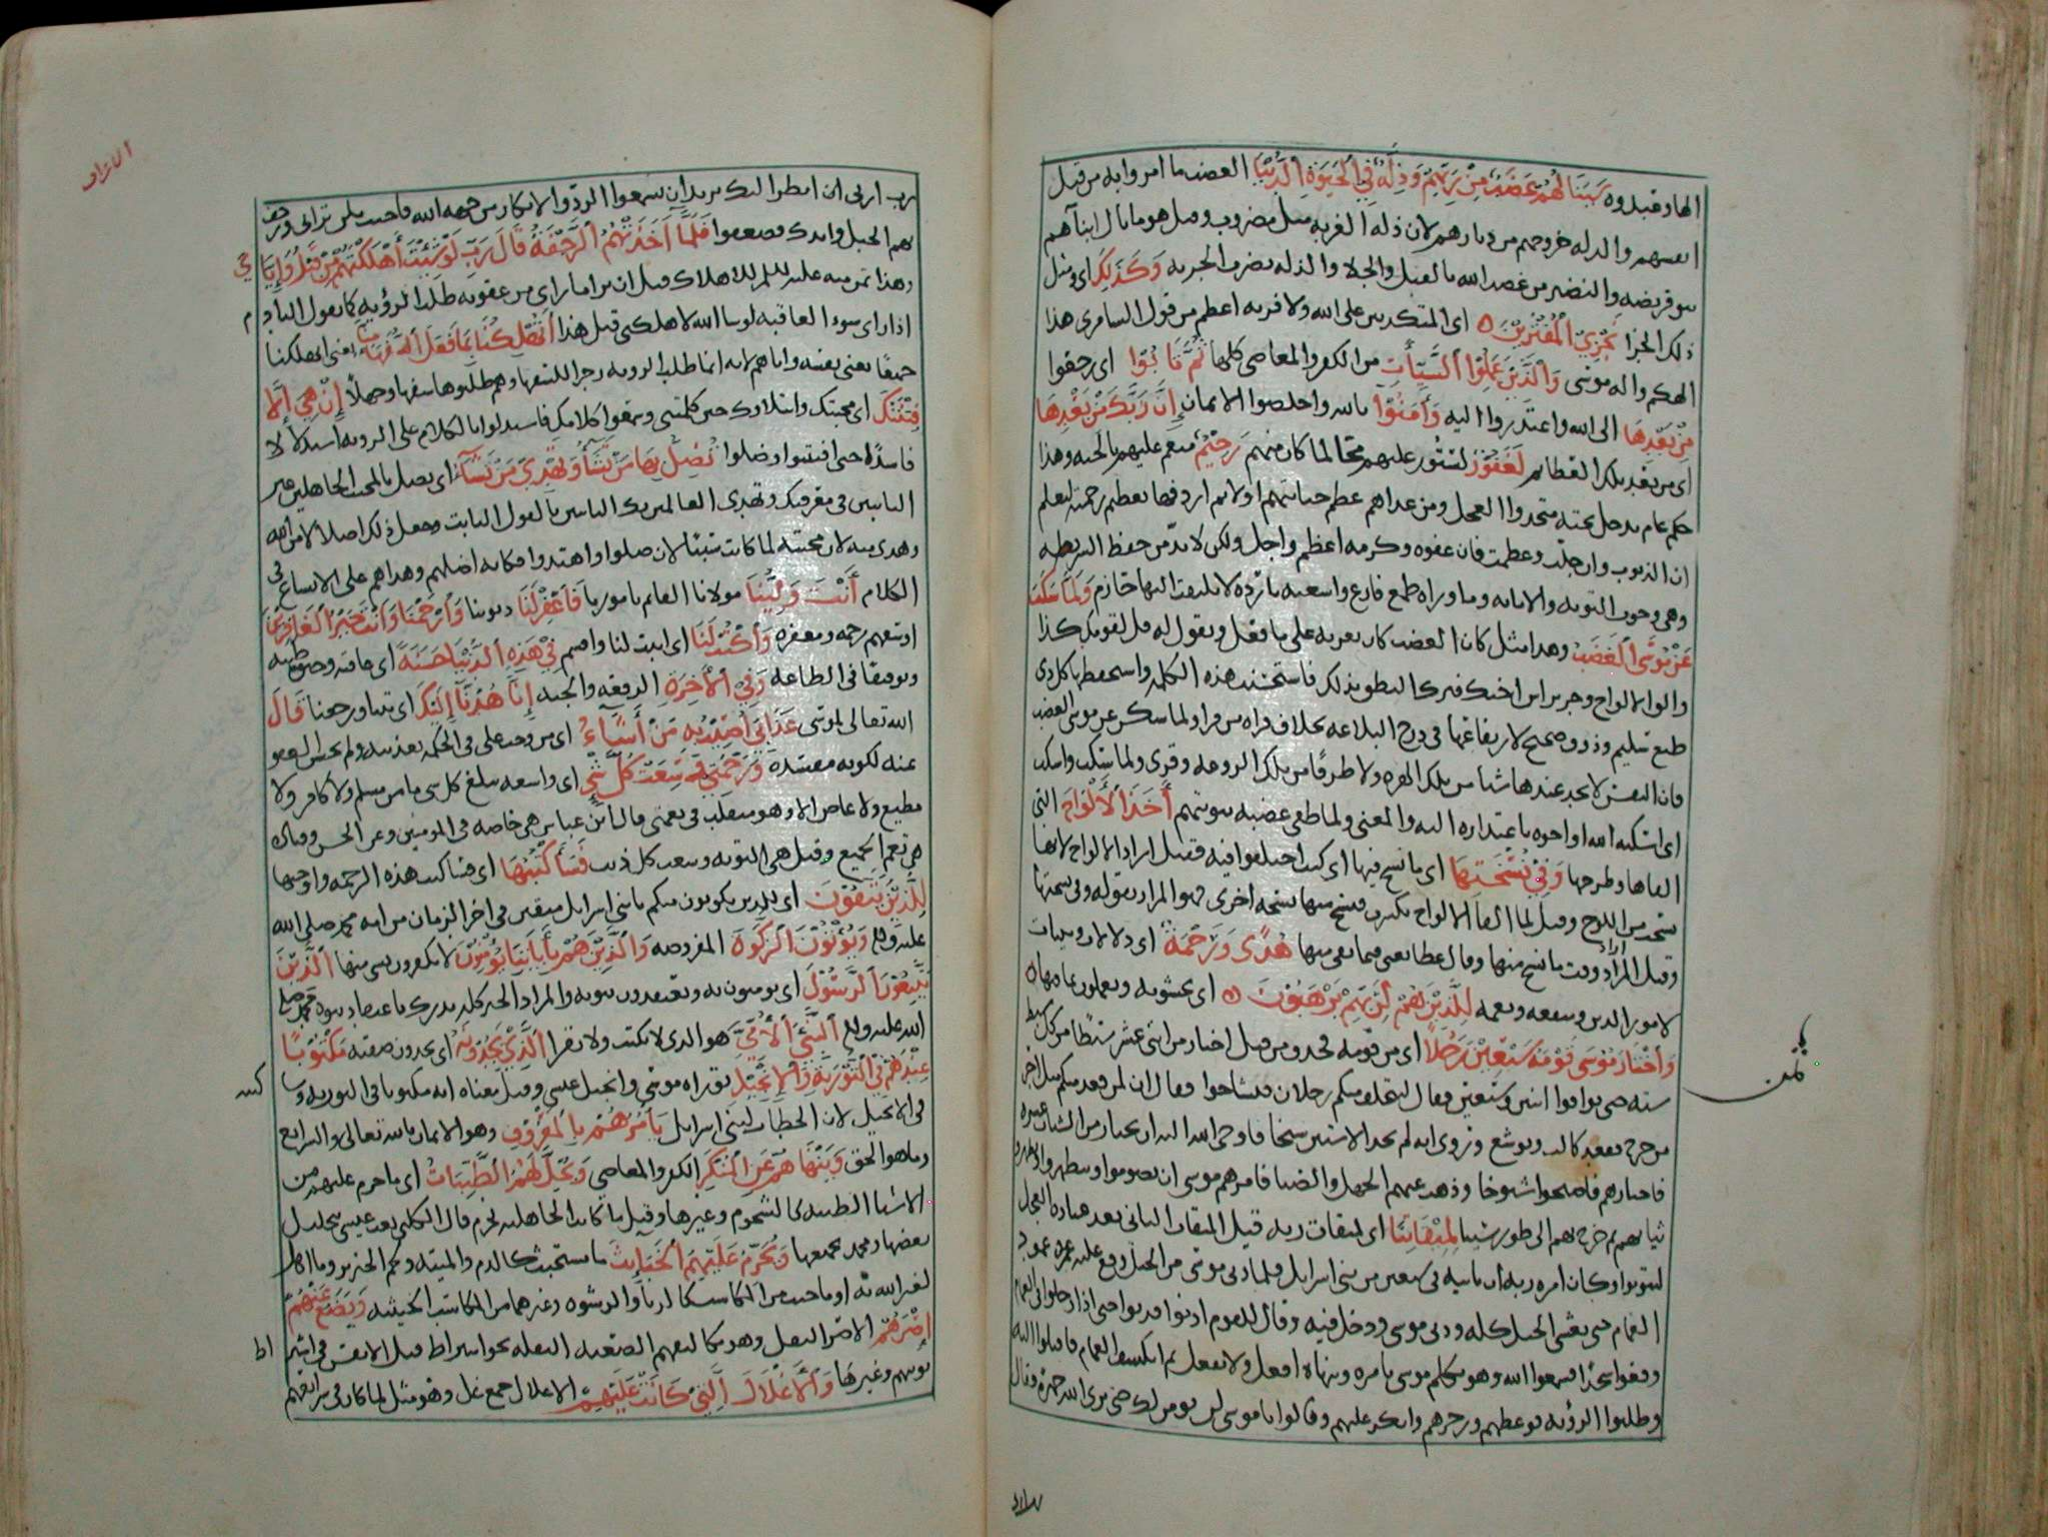 الها وقيل وه سينالهم غضب من ربهم وذلة في الحيوة الدنيا الغضب ما امروا به من قبل
انفسهم والذله خروجهم من ديارهم لان ذله الغربه مثل مضروب وقيل هو ما نال ابناهم
بنو قريضه والنضير من غضب الله بالقتل والجلا والذله بضرب الجزيه وكذلك اي ومثل
ذلك الجزا نجزي المفترين اي المتكذبين على الله ولا فريه اعظم من قول السامري هذا
الهكم واله موسى والذين عملوا السيأت من الكفر والمعاصي كلها ثم تابوا اي رجعوا
من بعدها الى الله واعتذروا اليه وأمنوا بالله واخلصوا الايمان إن ربك من بعدها
اي من بعد تلك العظائم لغفور لستور عليهم محا لما كان منهم رحيم منعم عليهم بالجنه وهذا
حكم عام يدخل تحته متخذوا العجل ومن عداهم عظم جنايتهم اولا ثم اردفها بعظم رحمته ليعلم
ان الذنوب وان جلت وعظمت فان عفوه وكرمه اعظم واجل ولكن لابد من حفظ الشريطه
وهي وجوب التوبه والانابه وما وراه طمع فارغ واشعبيه بارده لا يلتفت اليها حازم ولما سكت
عن موسى الغضب وهذا مثل كان الغضب كان يغريه على ما فعل ويقول له قل لقومك كذا
والق الالواح وجر براس اخيك فترك النطق بذلك فاستحسن هذه الكلمه واستفصحها كل ذي
طبع سليم وذوق صحيح لارتفاعها في درج البلاغه بخلاف قراه من قرا ولما سكن عن موسى الغضب
فان النفس لا تجد عندها شيا من تلك الهزه ولا طرفا من تلك الروعه وقري ولما سكت واسكت
اي اسكته الله او اخوه باعتذاره اليه والمعنى ولما طفى غضبه بتوبتهم أخذ الألواح التي
القاها وطرحها وفي نسختها اي ما نسخ فيها اي كتب اختلفوا فيه فقيل اراد الالواح لانها
نسخت من اللوح وقيل لما القا الالواح تكسرت فنسخ منها نسخه اخرى فهو المراد بقوله وفي نسختها
وقيل المراد وفيما نسخ منها وقال عطا يعني فيما بقي منها هدى ورحمة اي دلالات وبينات
لامور الدين وسعه ونعمه للذين هم لربهم يرهبون اي يخشونه ويعملون بما فيها
واختار موسى قومه سبعين رجلا اي من قومه فحذف من قيل اختار من اثني عشر سبطا من كل سبط
سته حتى توافوا اثنين وسبعين فقال ليتخلف منكم رجلان فتشاحوا فقال ان لمن قعد منكم مثل اجر
من خرج فقعد كالب ويوشع وروي انه لم يجد الا ستين شيخا فاوحى الله اليه ان يختار من الشباب عشره
فاختارهم فاصبحوا شيوخا وذهب عنهم الجهل والصبا فامرهم موسى ان يصوموا ويتطهروا ويطهروا
ثيابهم ثم خرج بهم الى طور سينا لميقاتنا اي لميقات ربه قيل الميقات الثاني بعد عباده العجل
ليتوبوا وكان امره ربه ان ياتيه في سبعين من بني اسرايل فلما دنى موسى من الجبل وقع عليه عمود
الغمام حتى تغشى الجبل كله ودنى موسى ودخل فيه وقال للقوم ادنوا فدنوا حتى اذا دخلوا في الغمام
وقعوا سجدا فسمعوا الله وهو يكلم موسى يامره وينهاه افعل ولا تفعل ثم انكشف الغمام فاقبلوا اليه
وطلبوا الرؤيه فوعظهم وزجرهم وانكر عليهم وقالوا يا موسى لن نومن لك حتى نرى الله جهرة فقال
ثمن
رب ارني انظر اليك يريد ان يسمعوا الرد والانكار من جهه الله فاجيب بلن تراني ورجف
بهم الجبل واندك فصعقوا فلما أخذتهم الرجفة قال رب لو شئت أهلكتهم من قبل وإياي
وهذا تمن منه عليه السلم للاهلاك قبل ان يرا ما راى من عقوبه طلب الرؤيه كما يقول النادم
اذا راى سوء العاقبه لو شا الله لاهلكني قبل هذا أتهلكنا بما فعل السفهاء منا يعني اتهلكنا
جميعا يعني نفسه واياهم لانه انما طلب الرويه زجرا للسفها وهم طلبوها سفها وجهلا إن هي إلا
فتنتك اي محنتك وابتلاوك حين كلمتني وسمعوا كلامك فاستدلوا بالكلام على الرويه استدلالا
فاسدا حتى افتتنوا وضلوا تضل بها من تشاء وتهدي من تشاء اي تضل بالمحنه الجاهلين غير
الثابتين في معرفتك وتهدي العالمين بك الثابتين بالقول الثابت وجعل ذلك اضلالا من الله
وهدى منه لان محنته لما كانت سببا لان ضلوا واهتدوا فكانه اضلهم وهداهم على الاتساع في
الكلام أنت ولينا مولانا القايم بامورنا فاغفر لنا ذنوبنا وارحمنا وأنت خير الغافرين
اوسعهم رحمه ومغفره واكتب لنا اي اثبت لنا واقسم في هذه الدنيا حسنة اي عافيه وحيوة طيبه
وتوفيقا في الطاعه وفي الأخرة الرفعه والجنه إنا هدنا إليك اي تبنا ورجعنا قال
الله تعالى لموسى عذابي أصيب به من أشاء اي من وجب علي في الحكمه تعذيبه ولم يحسن العفو
عنه لكونه مفسده ورحمتي وسعت كل شئ اي واسعه تبلغ كل شي ما من مسلم ولا كافر ولا
مطيع ولا عاص الا وهو متقلب في نعمتي قال ابن عباس هي خاصه في المومنين وعن الحسن وقتاده
هي تعم الجميع وقيل هي التوبه وسعت كل ذنب فسأكتبها اي فساكتب هذه الرحمه واوجبها
للذين يتقون اي للذين يكونون منكم يا بني اسرايل متقين في اخر الزمان من امه محمد صلى الله
عليه وسلم ويؤتون الزكوة المفروضه والذين هم بأياتنا يؤمنون لا يكفرون بشي منها الذين
يتبعون الرسول اي يومنون به ويعتقدون نبوته والمراد الخير كله يدرك باعتقاد نبوه محمد صلى
الله عليه وسلم النبي الأمي هو الذي لا يكتب ولا يقرا الذي يجدونه اي يجدون صفته مكتوبا
عندهم في التورية والإنجيل توراه موسى وانجيل عيسى وقيل معناه انه مكتوبا في التوريه وسا
في الانجيل لان الخطاب لبني اسرايل يأمرهم بالمعروف وهو الايمان بالله تعالى والشرايع
وما هو الحق وينهاهم عن المنكر الكفر والمعاصي ويحل لهم الطيبات اي ما حرم عليهم من
الاشيا الطيبه كالشحوم وغيرها وقيل ما كانت الجاهليه تحرم قال الكلبي بعث عيسى بتحليل
بعضها ومحمد بجميعها ويحرم عليهم الخبايث ما يستخبث كالدم والميته ولحم الخنزير وما اهل
لغير الله به او ما خبث من المكاسب كالربا والرشوه وغيرهما من المكاسب الخبيثه ويضع عنهم
إصرهم الاصر الثقل وهو تكاليفهم الصعبه الثقيله نحو اشتراط قتل الانفس في
توبتهم وغيرها والأغلال التي كانت عليهم الاغلال جمع غل وهو مثل لما كان في شرايعهم